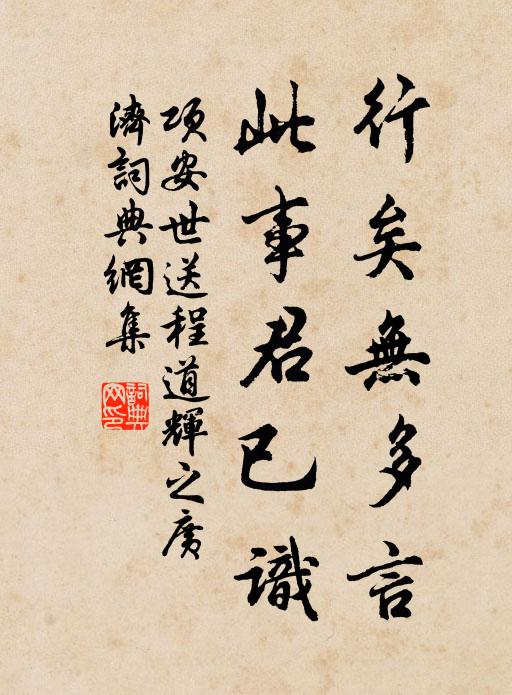 行矣無多言
此事君已識
項安世送程道輝之廣
濟詞典網集
詞典网印